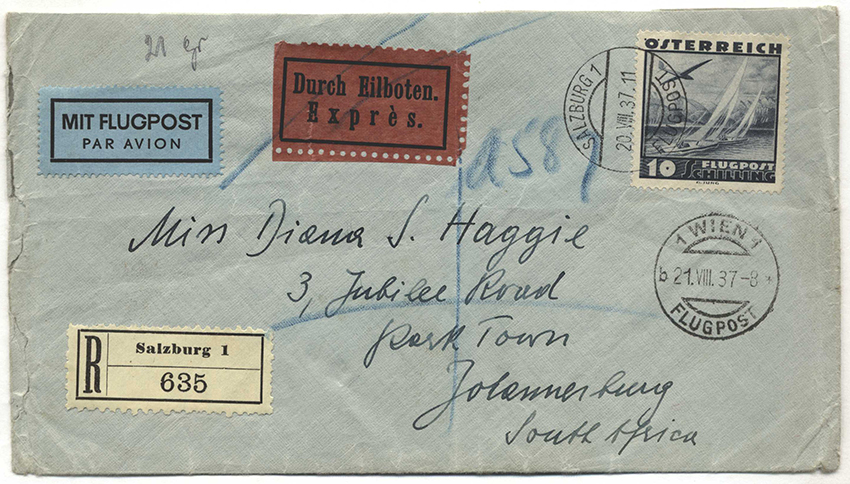 21 gr
MIT FLUGPOST
PAR AVION
Durch Eilboten.
Exprès.
a58
SALZBURG 1
20.VIII.37.11
FLUGPOST
ÖSTERREICH
10 FLUGPOST
SCHILLING
Miss Diana S. Haggie
3, Jubilee Road
Park Town
Johannesburg
South Africa
1 WIEN 1
b 21.VIII.37-8 *
FLUGPOST
R
Salzburg 1
635